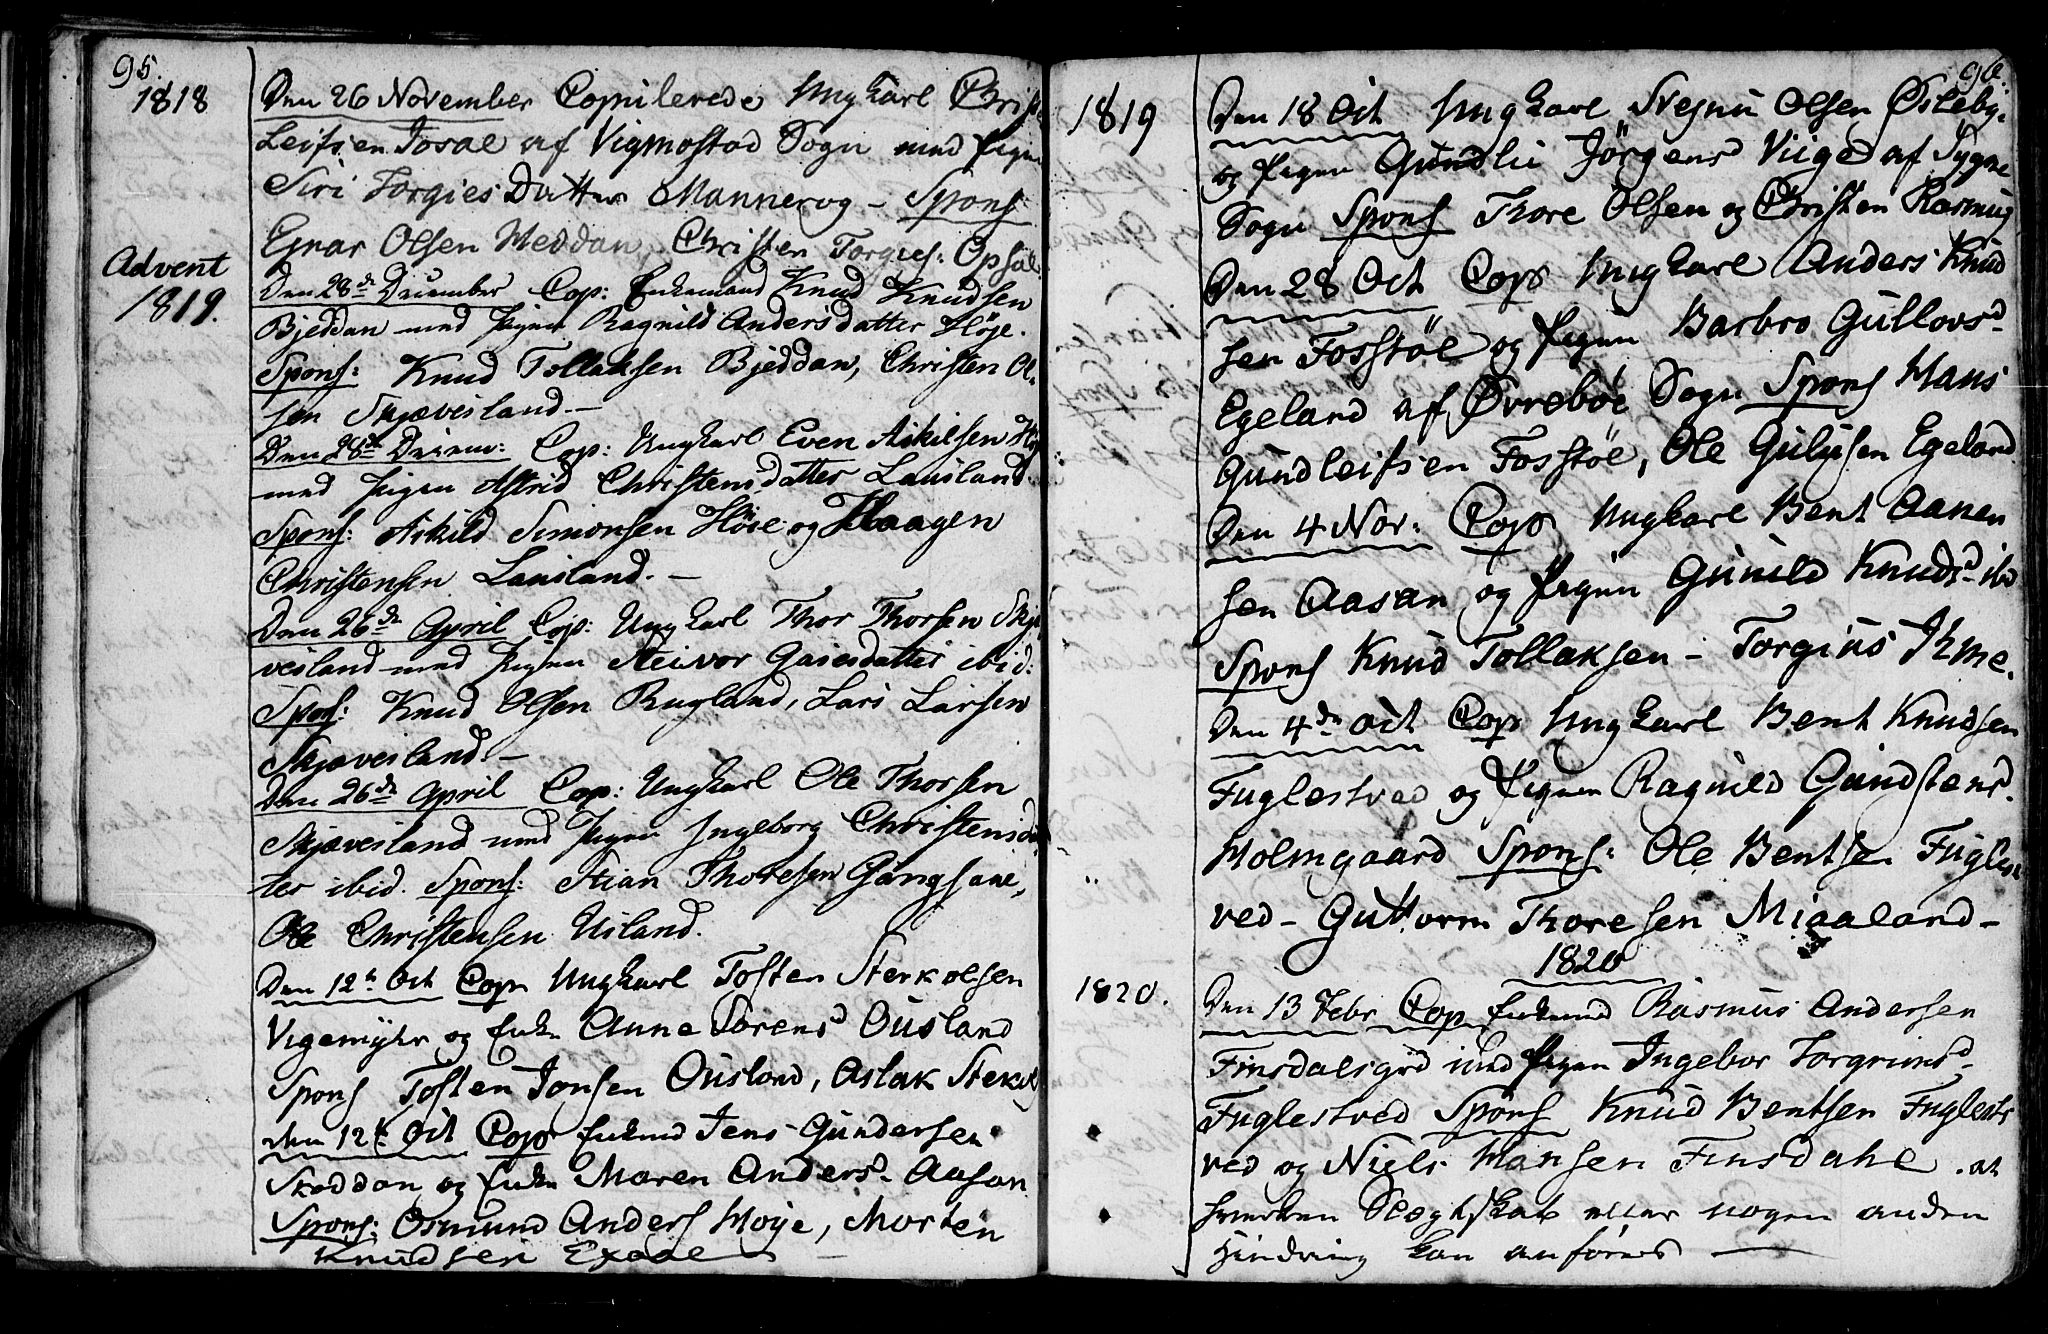 95.
1818
Den 26 November Copulerede Ungkarl
Leifsen Josal af Vigmostad Sogn med Pigen
Siri Torgies Datter Mannerog - Spons
Egnar Olsen Heddan, Christen Torgies: Opsal
Advent
1819.
Den 28de December Cop: Enkemand Knud Knudsen
Bjeddan med Pigen Ragnild Andersdatter Høje.
Spons: Knud Tollaksen Bjeddan, Christen Ol-
sen Skjævesland. -
Den 28de Decem: Cop: Ungkarl Even Askilsen
med Pigen Astrid Christensdatter Lausland.
Spons: Askild Simonsen Höie og Haagen
Christensen Lausland. -
Den 26de April Cop: Ungkarl Thor Thorsen Skjæ
vesland med Pigen Steivor Gasesdatter ibid:
Spons: Knud Olsen Rugland, Lars Larsen
Skjævesland. -
Den 26de April Cop: Ungkarl Ole Thorsen
Skjævesland med Pigen Ingeborg Christensdat
ter ibid. Spons: Stian Thoresen Gangsane,
Ole Christensen Usland.
Den 12te Oct Cop Ungkarl Tosten Sterkolsen
Vigemyhr og Enke Anne Sörensd Ousland
Spons Tosten Jonsen Ousland, Aslak Sterkol
Den 12te Oct Cop Enkmd Jens Gundersen
Skeddan og Enke Maren Andersd- Aasan
Spons: Osmund Anders Høye, Morten
Knudsen
96.
1819
Den 18 Oct Ungkarl Olsen Östeby.
og Pigen Gundlie Jörgensd Viige af Sygne
Sogn Spons Thore Olsen og Christen Rasmus
Den 28 Oct Cop Ungkarl Anders Knud
sen Fosstöl og Pigen Barbro Gullovsd-
Egeland af Øvrebøe Sogn Spons Hans
Gundleifsen Fosstöl, Ole Gulufsen Egeland
Den 4 Nov: Cop Ungkarl Bent Aanen
sen Aasan og Pigen Gunild Knudsd ibd
Spons Knud Tollaksen - Torgius Ihme.
Den 4de Oct Cop Ungkarl Bent Knudsen
Fuglestved og Pigen Ragnild Gundstensd.
Holmgaard Spons: Ole Bentsen Fuglest
ved - Guttorm Thoresen Miaaland -
1820
1820.
Den 13 Febr Cop Enkmd Rasmus Andersen
Finsdalsgrd med Pigen Ingebor Torgrimsd-
Fuglestved Spons Knud Bentsen Fuglest
ved og Niels Hansen Finsdahl. at
hverken Slægtskab eller nogen anden
Hindring kan anføres